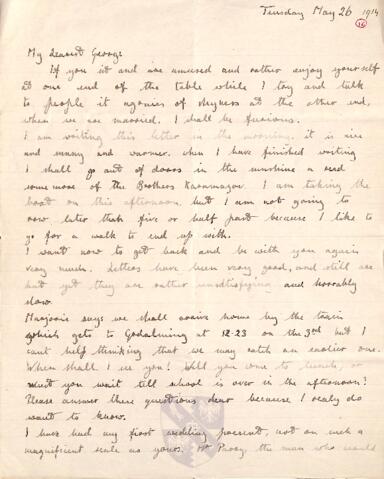 Tuesday May 26 1914
16
My dearest George
If you sit and are amused and rather enjoy yourself
at one end of the table while I try and talk
to people in agonies of shyness at the other end,
when we are married, I shall be furious.
I am writing this letter in the morning. it is nice
and sunny and warmer. when I have finished writing
I shall go out of doors in the sunshine & read
some more of the Brothers Karamazov. I am taking the
boat on this afternoon, but I am not going to
row later than five or half past because I like to
go for a walk to end up with.
I want now to get back and be with you again
very much. Letters have been very good, and still are
but yet they are rather unsatisfying and horrably
slow.
Marjorie says we shall arrive home by the train
which gets to Godalming at 12-23 on the 3rd but I
cant help thinking that we may catch an earlier one.
When shall I see you? Will you come to lunch, or
must you wait till school is over in the afternoon?
Please answer these questions dear because I realy do
want to know.
I have had my first wedding present, not on such a
magnificent scale as yours. Mr the man who would